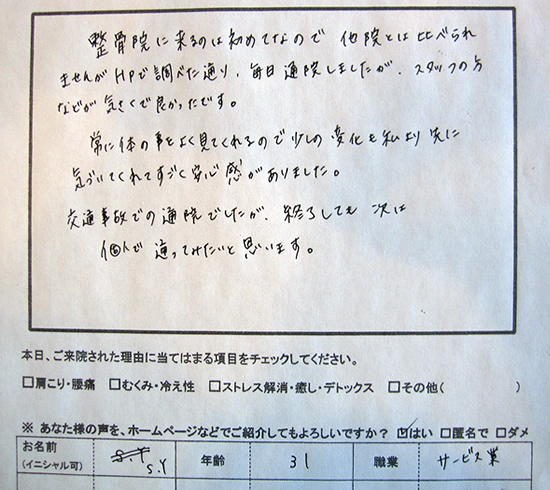 整骨院に来るのは初めてなので 他院とは比べられ
ませんがHPで調べた通り、毎日通院しましたが、スタッフの方
などが気さくで良かったです。
常に体の事をよく見てくれるので少しの変化も私より先に
気づいてくれてすごく安心感がありました。
交通事故での通院でしたが、終了しても次は
個人で通ってみたいと思います。
本日、ご来院された理由に当てはまる項目をチェックしてください。
□肩こり・腰痛 □むくみ・冷え性 □ストレス解消・癒し・デトックス □その他( )
※ あなた様の声を、ホームページなどでご紹介してもよろしいですか？ ☑はい □匿名で □ダメ
お名前 S.Y 年齢 31 職業 サービス業
(イニシャル可) S.Y